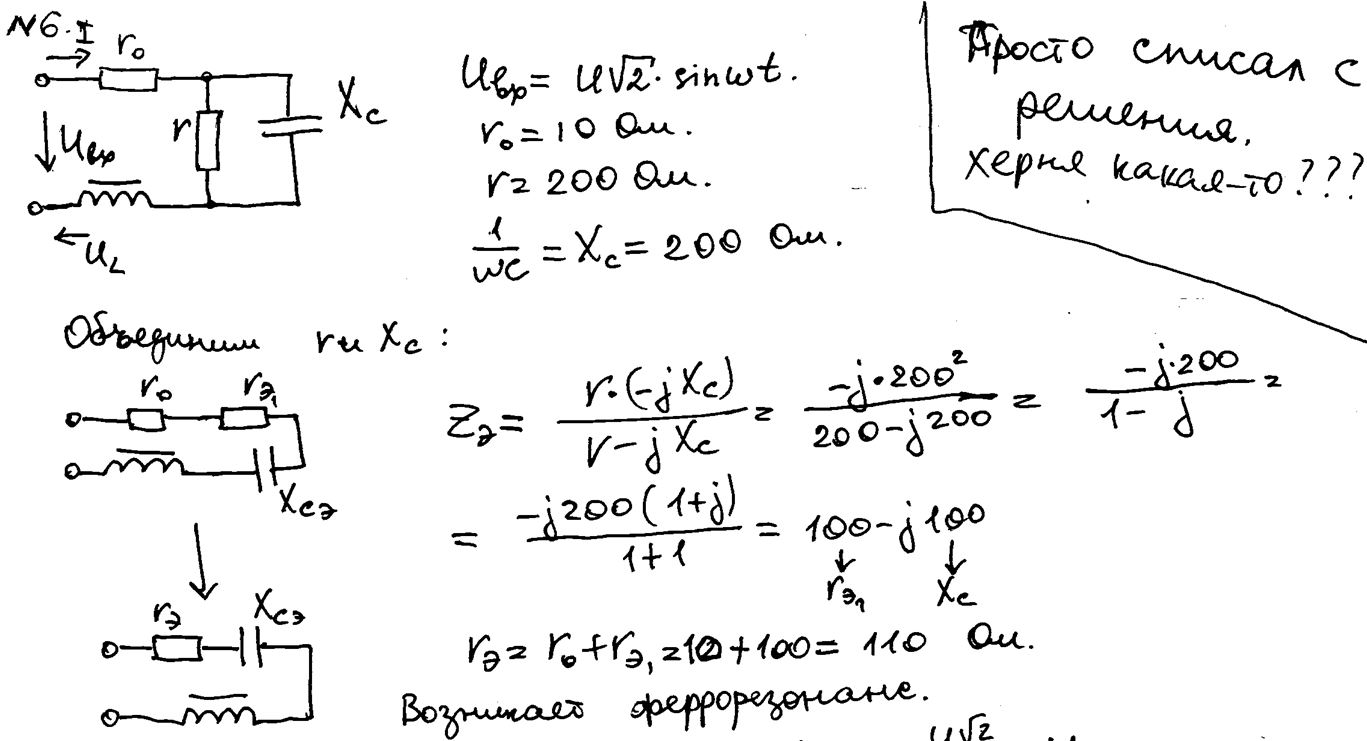 N6. I
r₀
r
X_C
U_вх
U_L
U_вх = U√2 · sinωt.
r₀ = 10 Ом.
r = 200 Ом.
1/ωC = X_C = 200 Ом.
Просто списал с
решения.
херня какая-то???
Объединим r и X_C :
r₀ r_Э₁
X_CЭ
Z_Э = r·(-jX_C)/(r-jX_C) = -j·200²/(200-j200) = -j·200/(1-j) =
= -j200(1+j)/(1+1) = 100-j100
r_Э₁ X_C
r_Э X_CЭ
r_Э = r₀ + r_Э₁ = 10+100 = 110 Ом.
Возникает феррорезонанс.
U√2